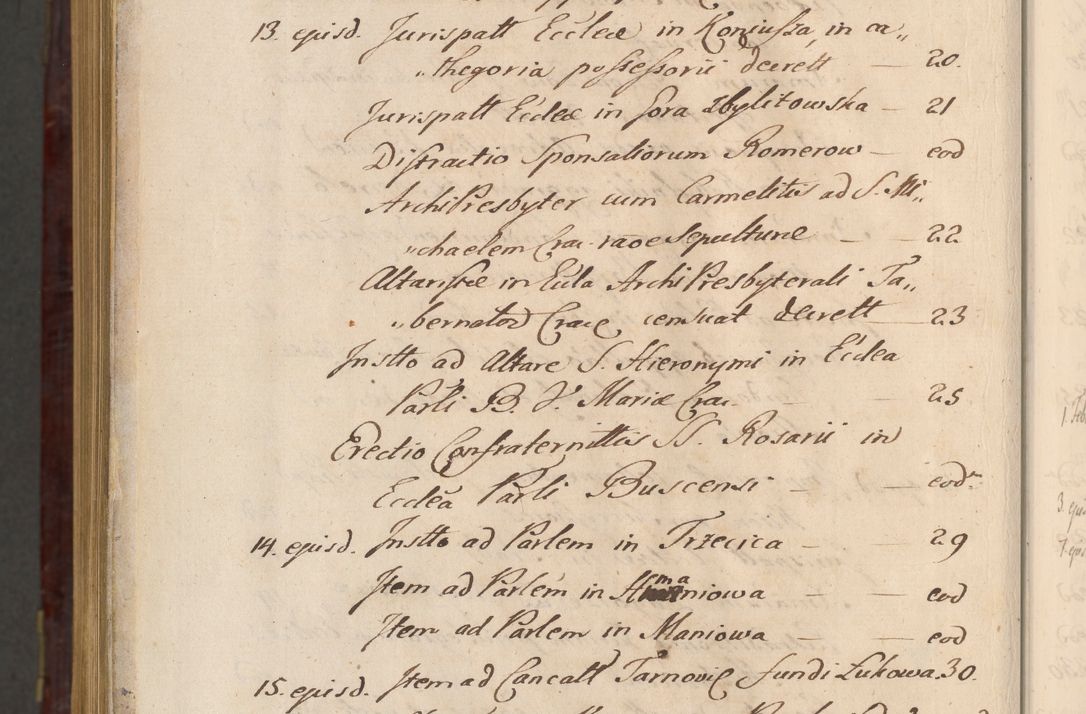 13. ejusd. Jurispatt Eccleæ in Koniussza, in ca„
„thegoria possessorii decrett — 20.
Jurispatt Eccleæ in Gora Zbylitowska — 21
Distractio Sponsaliorum Romerow — eod
ArchiPresbyter cum Carmelitis ad S. Mi„
„chaelem Crac. raõe Sepulturæ — — 22
Altaristæ in Eccla ArchiPresbyterali Ta„
„bernator Crac, censuat decrett — 23
Instto ad Altare S. Hieronymi in Ecclea
Parli B. V. Mariæ Crac. — — 25
Erectio Confraternittis SS. Rosarii in
Ecclea Parli Buscensi — — eod
14. ejusd. Instto ad Parlem in Trzecica — — 29
Item ad Parlem in Maniowa — — eod
Item ad Parlem in Maniowa — eod
15. ejusd. Item ad Cancatt Tarnovic fundi Łukowa. 30.